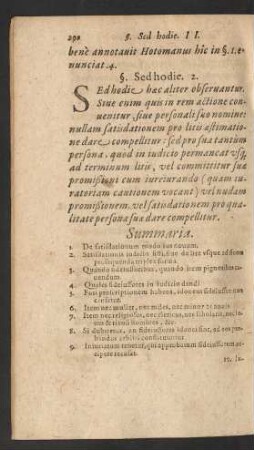 290 §. Sed hodie. II.
benè annotauit Hotomanus hîc in §. 1. e-
nunciat. 4.
§. Sed hodie. 2.
SEd hodie hæc aliter obseruantur.
Siue enim quis in rem actione con-
uenitur, siue personali suo nomine:
nullam satisdationem pro litis æstimatio-
ne dare compellitur: sed pro sua tantùm
persona, quòd in iudicio permaneat vsq́;
ad terminum litis, vel committitur suæ
promissioni cum iureiurando (quam iu-
ratoriam cautionem vocant) vel nudam
promissionem, vel satisdationem pro qua-
litate personæ suæ dare compellitur.
Summaria.
1. De satisdationum modo ius nouum.
2. Satisdationis iudicio sisti,
3. Quando fideiussoribus, quando item pignoribus
4. Quales fideiussores in iudicio dandi
5.
6. Item nec mulier, nec miles, nec minor
7. Item nec religiosus, nec clericus, nec scholaris,
8. Si dubitetur, an fideiussores idonei sint, ad
arbitrio
9. In iniuriam tenetur, qui approbatum fideiussorem ac-
cipere recusat.